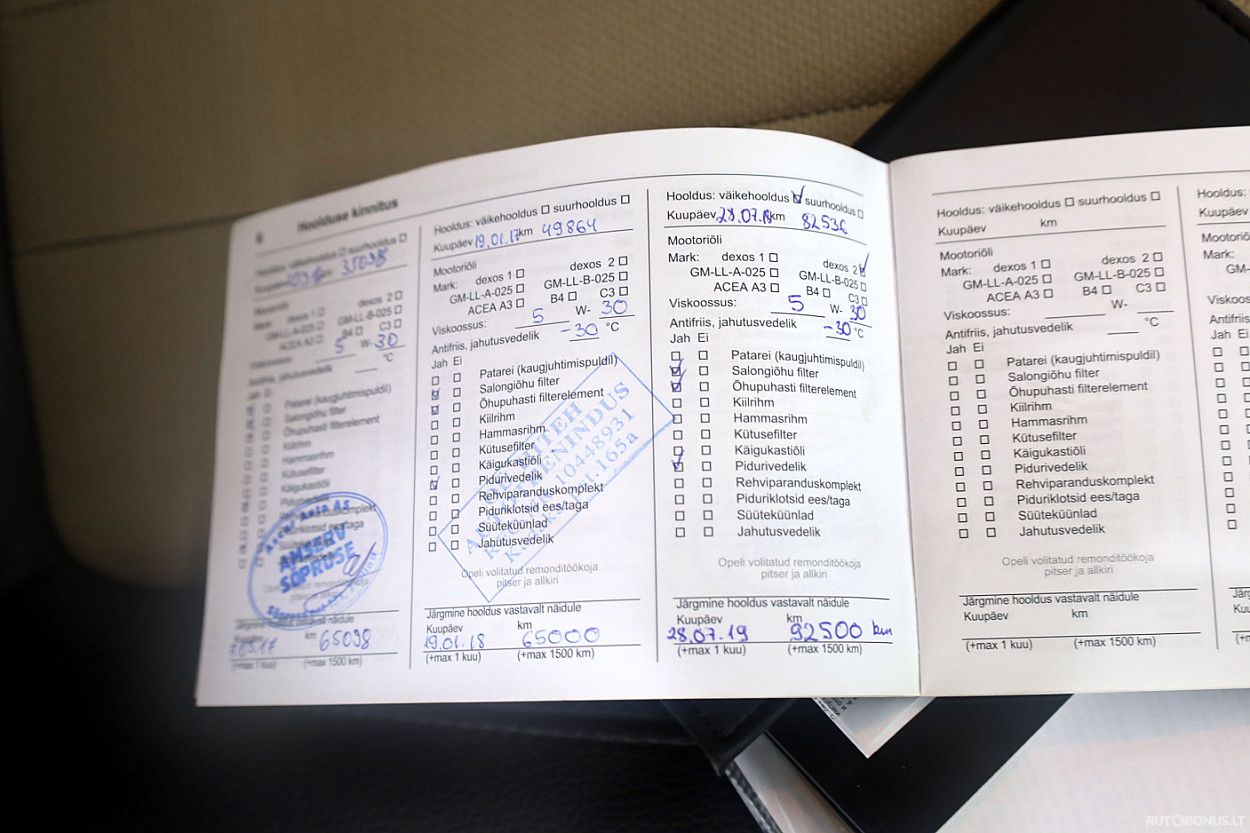 6 Hoolduse kinnitus
Hooldus: väikehooldus suurhooldus
Kuupäev km 35098
Mootoriõli
Mark: dexos 1 dexos 2
GM-LL-A-025 GM-LL-B-025
ACEA A3 B4 C3
Viskoossus: 5 W- 30
Antifriis, jahutusvedelik °C
Jah Ei
Patarei (kaugjuhtimispuldil)
Salongiõhu filter
Õhupuhasti filterelement
Kiilrihm
Hammasrihm
Kütusefilter
Käigukastiõli
Pidurivedelik
Piduriklotsid ees/taga
AMSERV
SÕPRUSE
Järgmine hooldus vastavalt näidule
Kuupäev km 65098
(+max 1 kuu) (+max 1500 km)
Hooldus: väikehooldus suurhooldus
Kuupäev 19.01.17 km 49864
Mootoriõli
Mark: dexos 1 dexos 2
GM-LL-A-025 GM-LL-B-025
ACEA A3 B4 C3
Viskoossus: 5 W- 30
Antifriis, jahutusvedelik -30 °C
Jah Ei
Patarei (kaugjuhtimispuldil)
Salongiõhu filter
Õhupuhasti filterelement
Kiilrihm
Hammasrihm
Kütusefilter
Käigukastiõli
Pidurivedelik
Rehviparanduskomplekt
Piduriklotsid ees/taga
Süüteküünlad
Jahutusvedelik
10448931
165a
Opeli volitatud remonditöökoja
pitser ja allkiri
Järgmine hooldus vastavalt näidule
Kuupäev km
19.01.18 65000
(+max 1 kuu) (+max 1500 km)
Hooldus: väikehooldus suurhooldus
Kuupäev 28.07.18 km 82536
Mootoriõli
Mark: dexos 1 dexos 2
GM-LL-A-025 GM-LL-B-025
ACEA A3 B4 C3
Viskoossus: 5 W- 30
Antifriis, jahutusvedelik -30 °C
Jah Ei
Patarei (kaugjuhtimispuldil)
Salongiõhu filter
Õhupuhasti filterelement
Kiilrihm
Hammasrihm
Kütusefilter
Käigukastiõli
Pidurivedelik
Rehviparanduskomplekt
Piduriklotsid ees/taga
Süüteküünlad
Jahutusvedelik
Opeli volitatud remonditöökoja
pitser ja allkiri
Järgmine hooldus vastavalt näidule
Kuupäev km
28.07.19 92500 km
(+max 1 kuu) (+max 1500 km)
Hooldus: väikehooldus suurhooldus
Kuupäev km
Mootoriõli
Mark: dexos 1 dexos 2
GM-LL-A-025 GM-LL-B-025
ACEA A3 B4 C3
Viskoossus: W-
Antifriis, jahutusvedelik °C
Jah Ei
Patarei (kaugjuhtimispuldil)
Salongiõhu filter
Õhupuhasti filterelement
Kiilrihm
Hammasrihm
Kütusefilter
Käigukastiõli
Pidurivedelik
Rehviparanduskomplekt
Piduriklotsid ees/taga
Süüteküünlad
Jahutusvedelik
Opeli volitatud remonditöökoja
pitser ja allkiri
Järgmine hooldus vastavalt näidule
Kuupäev km
(+max 1 kuu) (+max 1500 km)
Hooldus:
Kuupäev
Mark:
Jah Ei
AUTOBONUS.LT